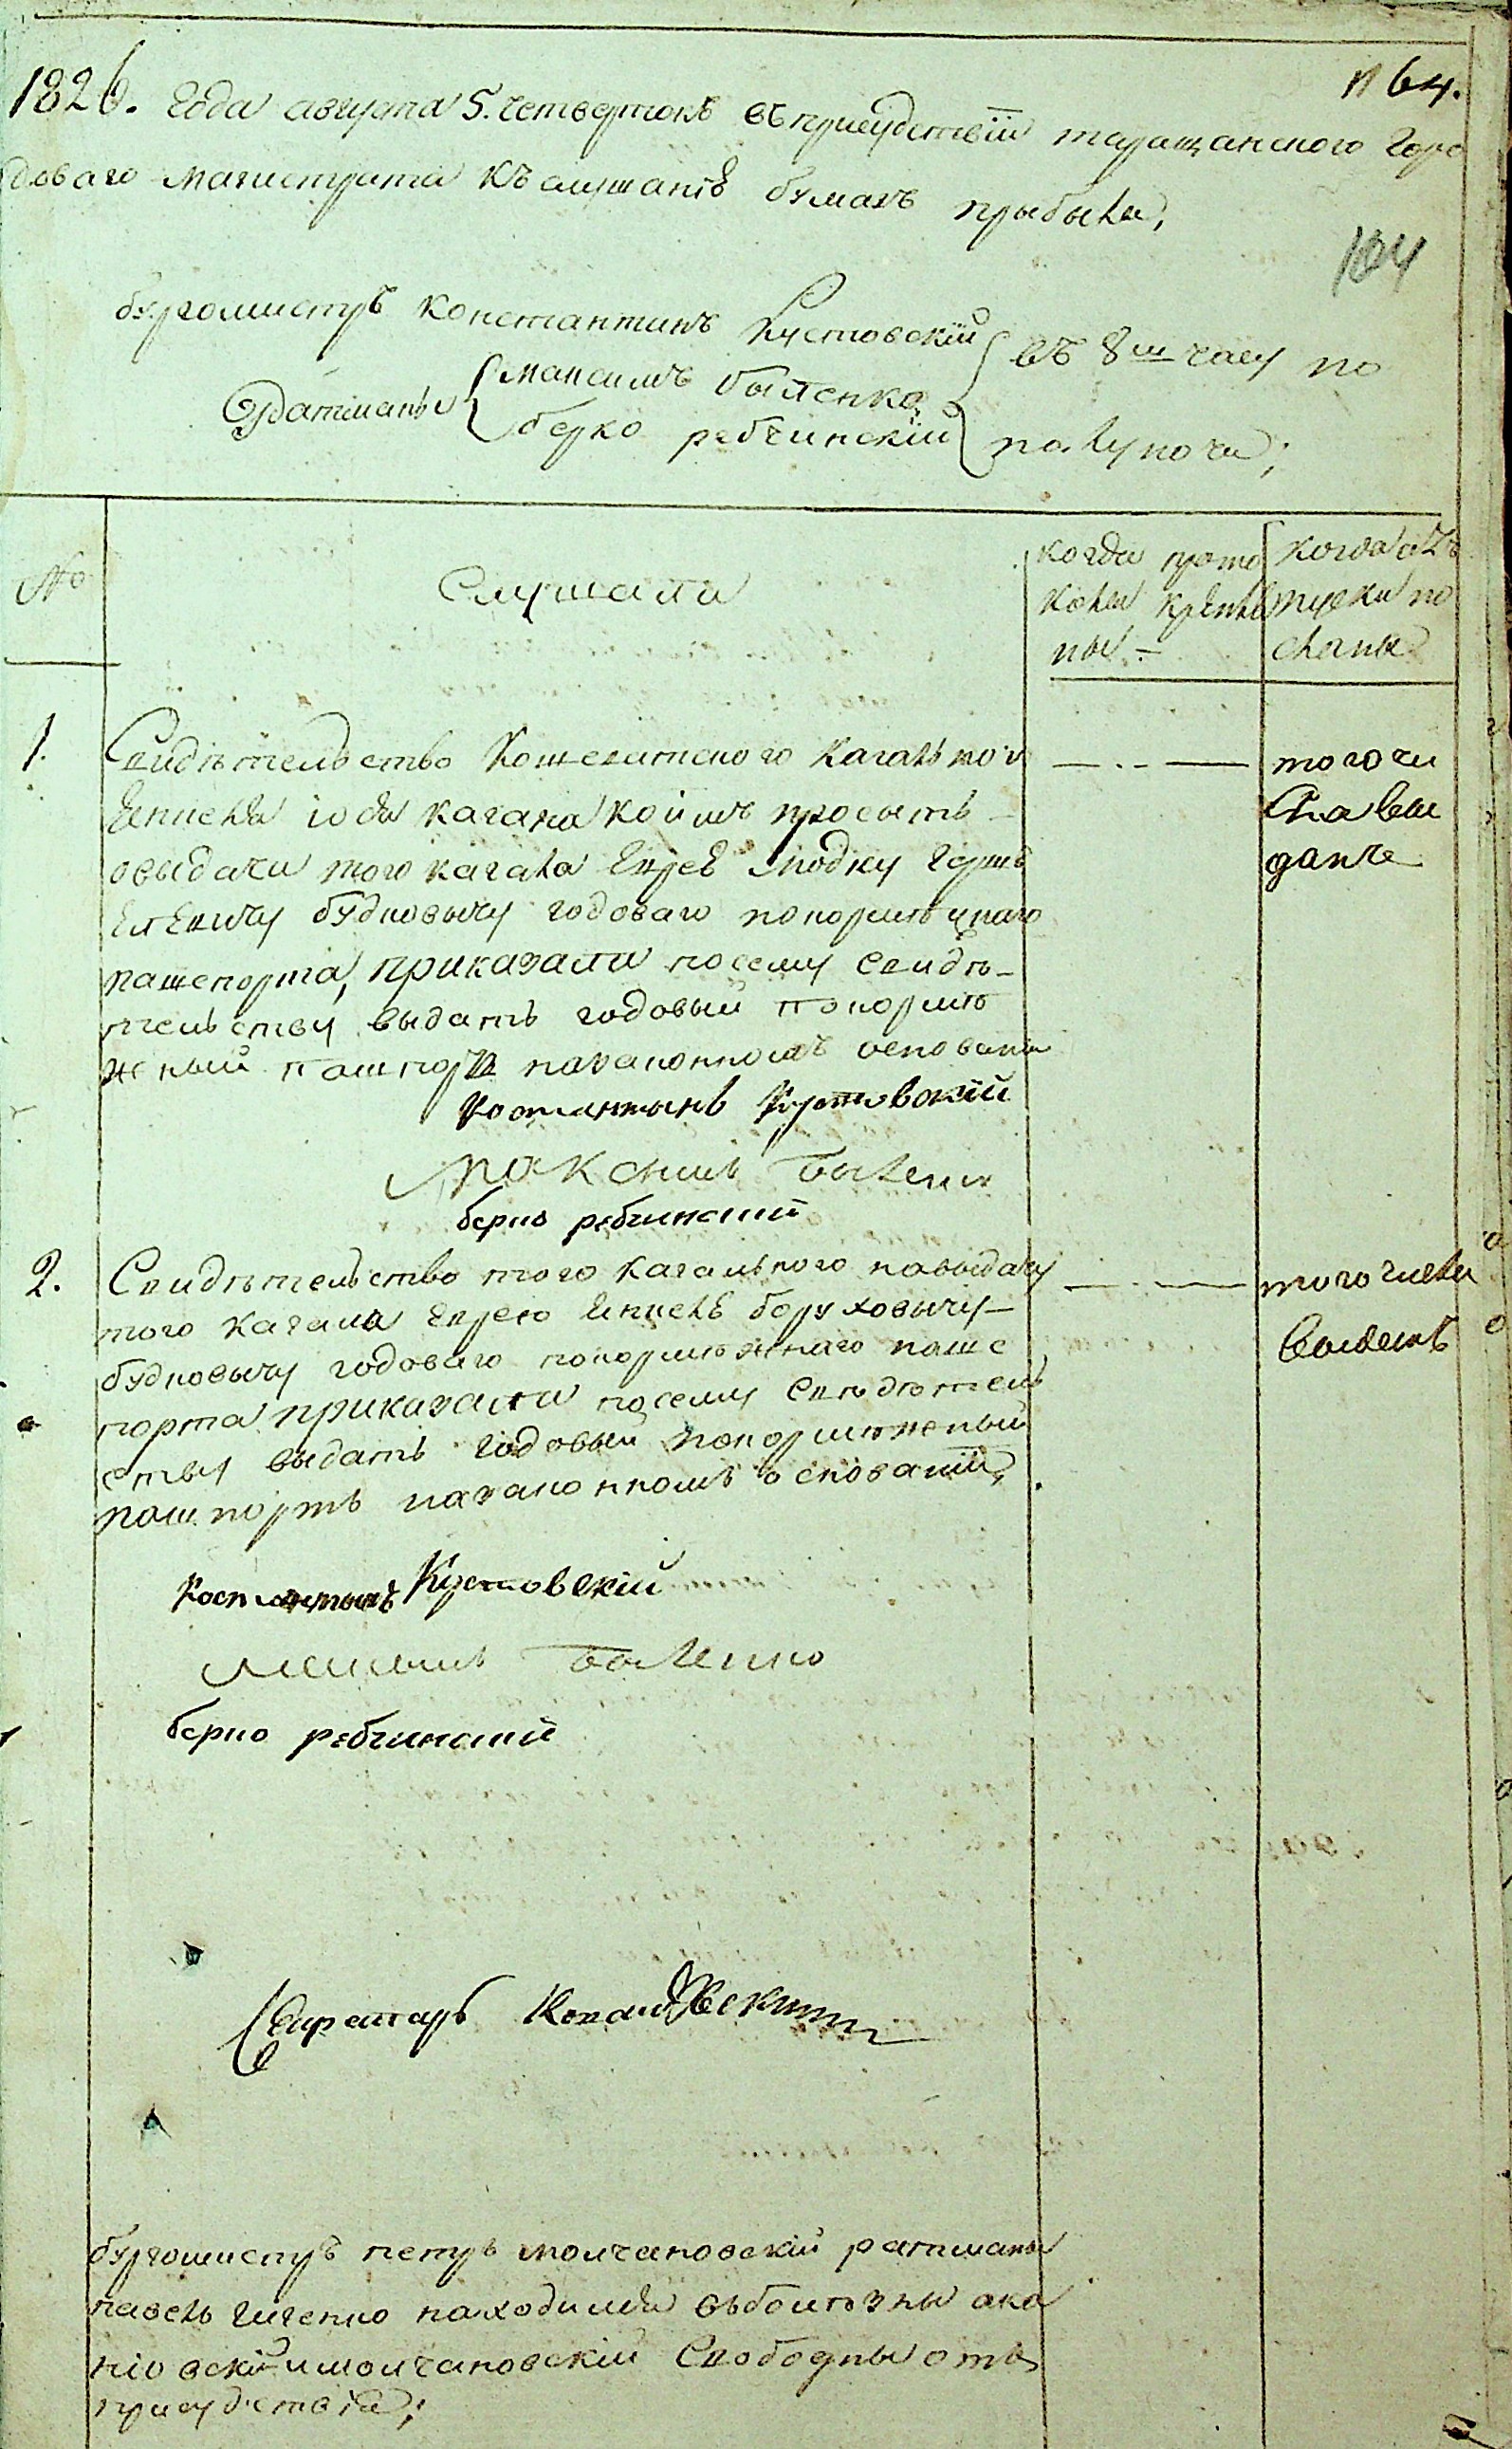 № 64.
1826. Года августа 5. четвертокъ въ присудствіи таращанского Горо
доваго магистрата къ слушаніе бумагъ прыбыли,
104
бургомистръ Константинъ Кустовскій
Ратманы
максимъ быленко
берко ребчинскій
въ 8м часу по
полуночи;
№
Слушали
когда прото
колы крепле
ны —
когда отъ
пуски по
сланы
1. Свидѣтельство Кошеватского Кагально
кагала коимъ просыть
овыдачи того кагала Еврее модку герш
будновычу годоваго покормежнаго
пашепорта, приказали посему свидѣ-
тельству выдать годовый покормѣ
жный пашпортъ назаконномъ основаніи
Костантынъ Кустовскій
максимъ быленко
берко ребчинский
того чи
сла выи
данче
2. Свидѣтельство того кагального павыдачу
того кагала Еврею боруховычу
будновычу годоваго покормѣжнаго паше
порта приказали посему свѣдѣтель
ству выдать годовый покормѣженый
пашпортъ назаконномъ основаніи,
того числа
выдетъ
Костантынъ Кустовскій
максимъ быленко
берко ребчинский
Секретарь
бургомистръ петръ молчановскій ратманы
павелъ гиченко находился въболѣзны ака
ніовскій имолчановскій Свободны отъ
присудствія;